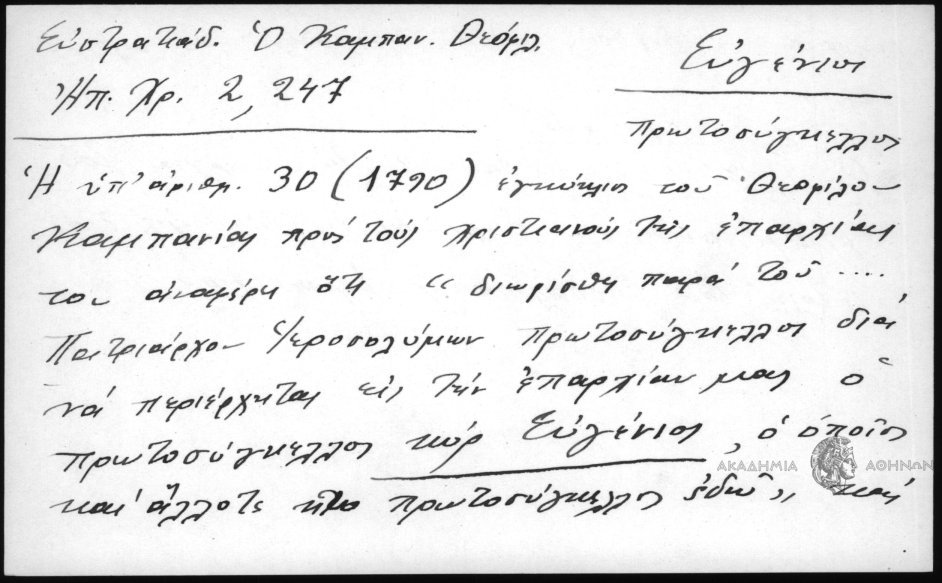 Εὐστρατιάδ. Ὁ Καμπαν. Θεόφιλ.
Ἠπ. Χρ. 2, 247
Εὐγένιος
πρωτοσύγκελλος
Ἡ ὑπ' ἀριθμ. 30 (1790) ἐγκύκλιος τοῦ Θεοφίλου
Καμπανίας πρὸς τοὺς χριστιανοὺς τῆς ἐπαρχίας
του ἀναφέρει ὅτι "διωρίσθη παρὰ τοῦ ....
Πατριάρχου Ἱεροσολύμων πρωτοσύγκελλος διὰ
νὰ περιέρχηται εἰς τὴν ἐπαρχίαν μας ὁ
πρωτοσύγκελλος κὺρ Εὐγένιος, ὁ ὁποῖος
καὶ ἄλλοτε ἦτο πρωτοσύγκελλος ἐδῶ", καὶ
ΑΚΑΔΗΜΙΑ ΑΘΗΝΩΝ